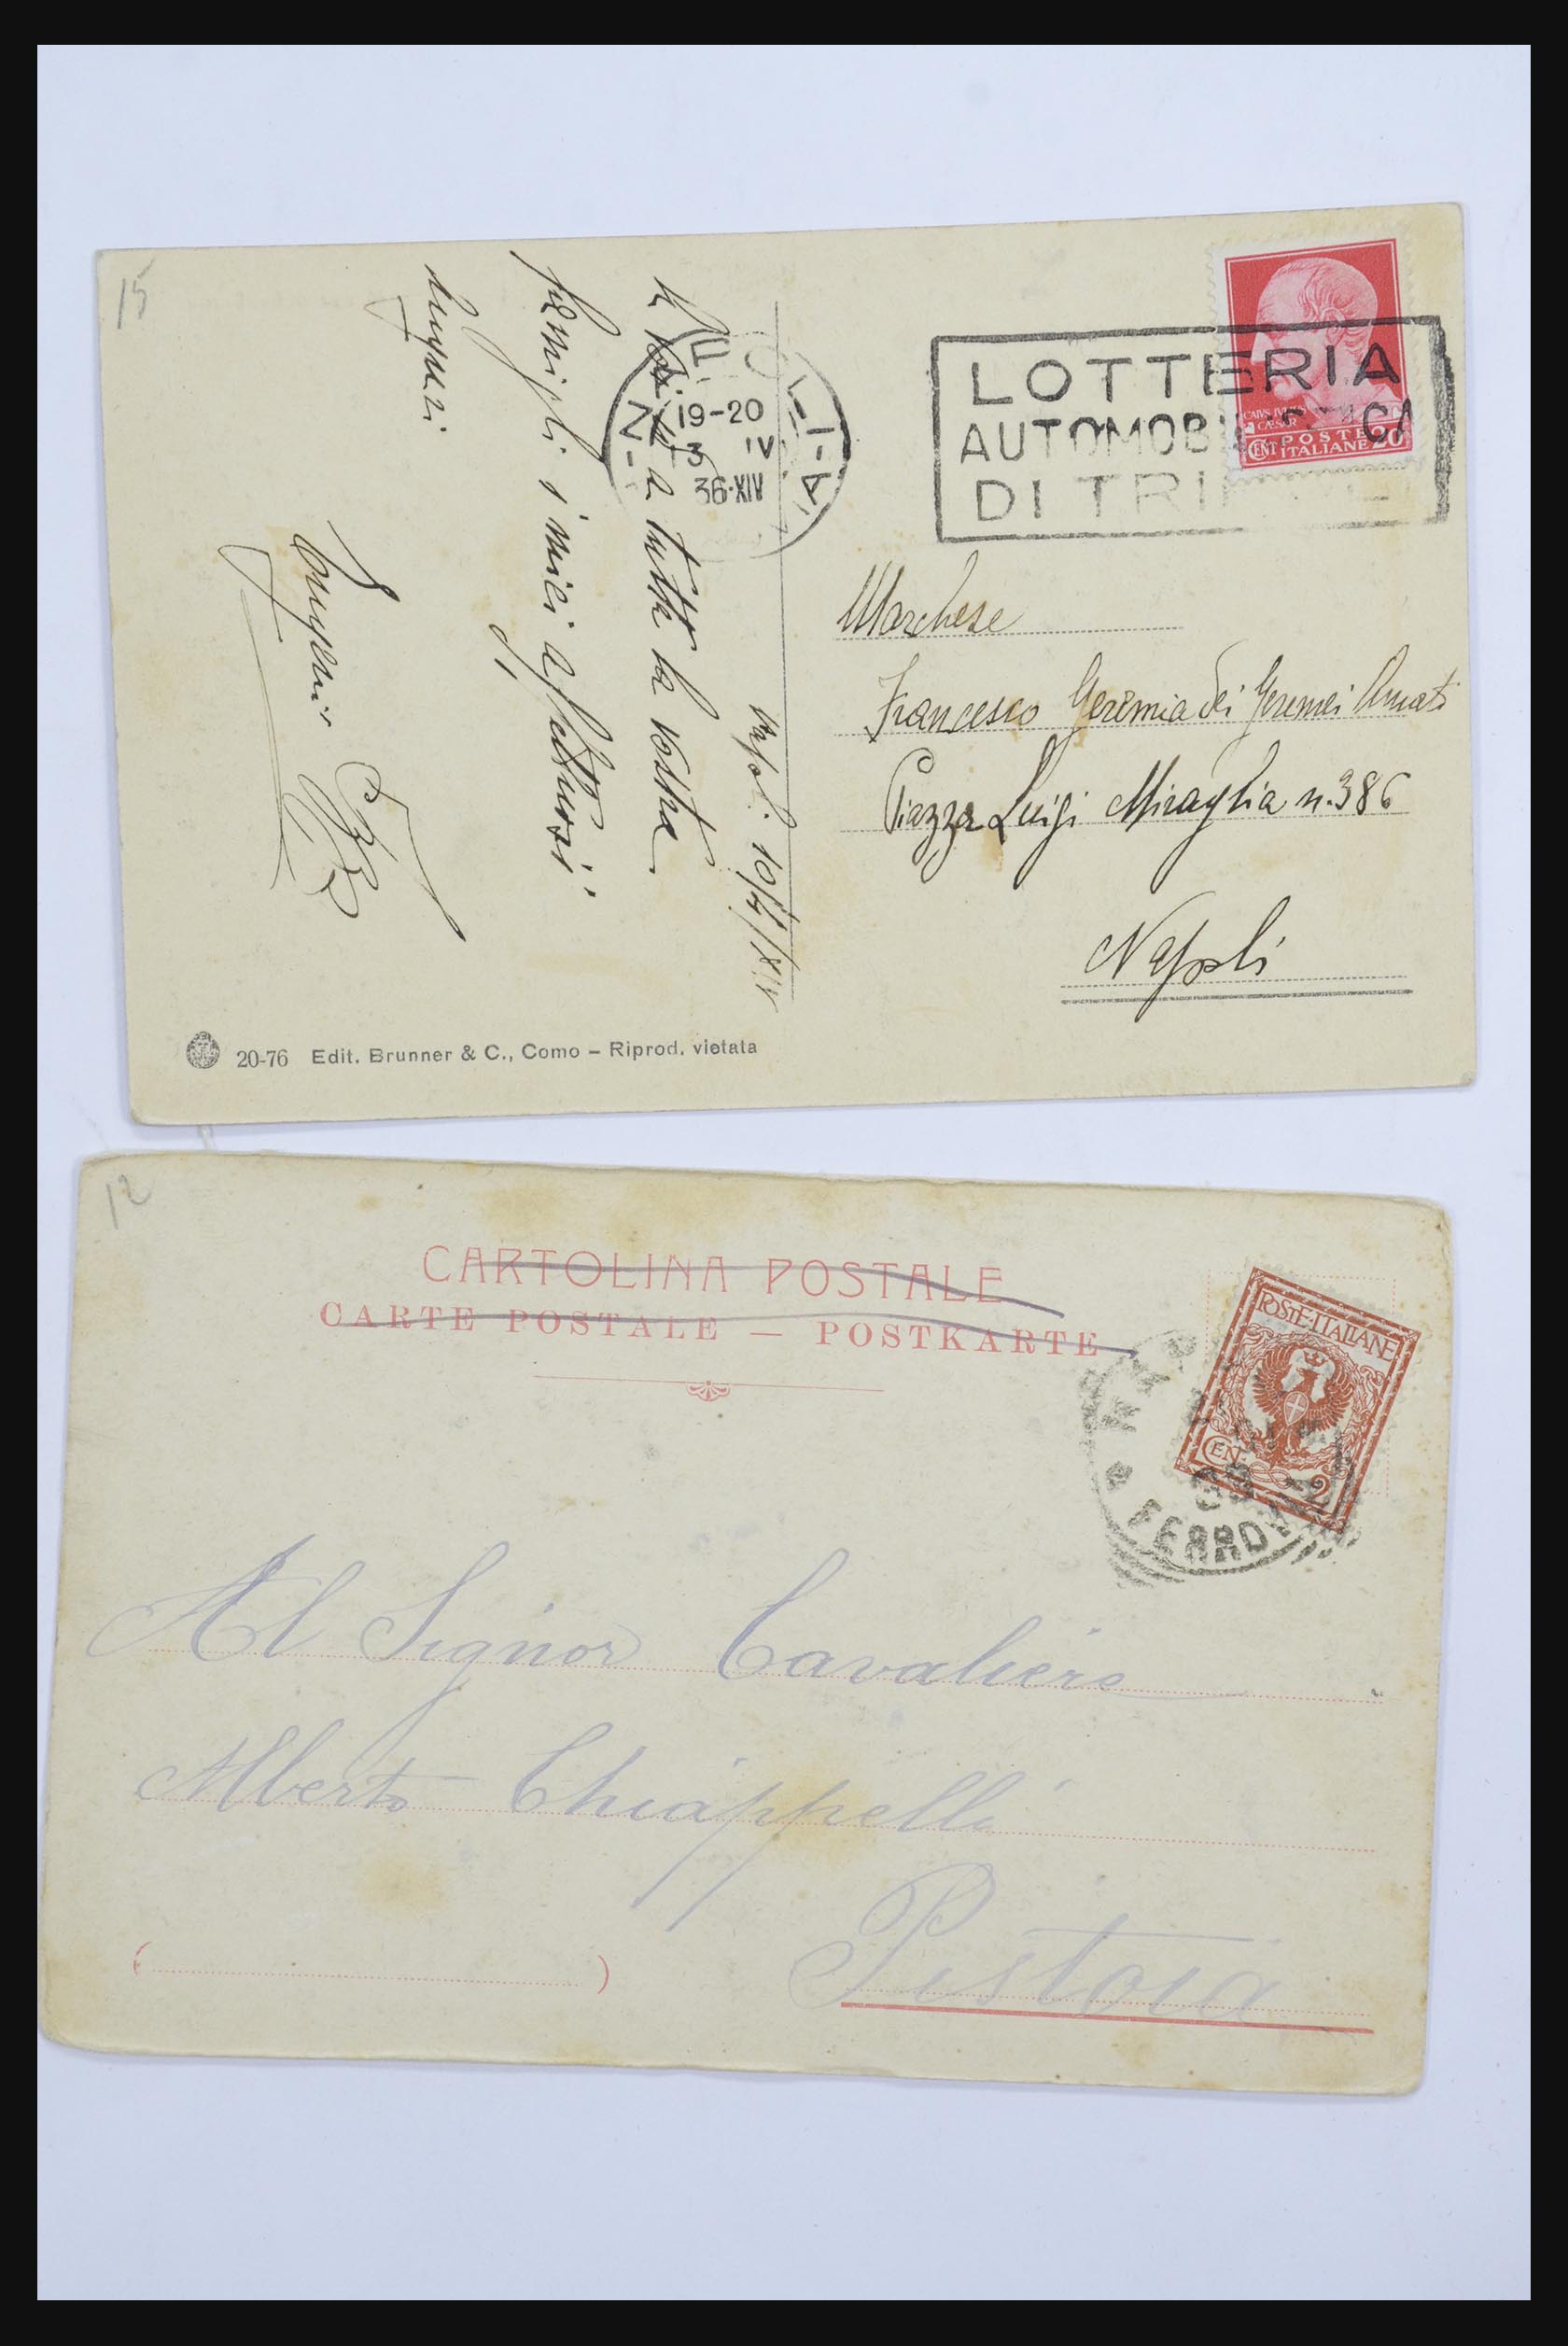 15
LOTTERIA
AUTOMOBILISTICA
DI TRI
CENT POSTE 20
ITALIANE
19-20
IV
36·XIV
Napoli 10/4/XIV
a tutta la vostra
famigli i miei affettuosi
auguri
Marchese
Francesco Geremia dei Geremei
Piazza Luigi Miraglia n. 386
Napoli
20-76 Edit. Brunner & C., Como – Riprod. vietata
12
CARTOLINA POSTALE
CARTE POSTALE — POSTKARTE
POSTE·ITALIANE
CEN. 2
FERROV
Al Signor Cavaliere
Alberto Chiappelli
Pistoia
( )